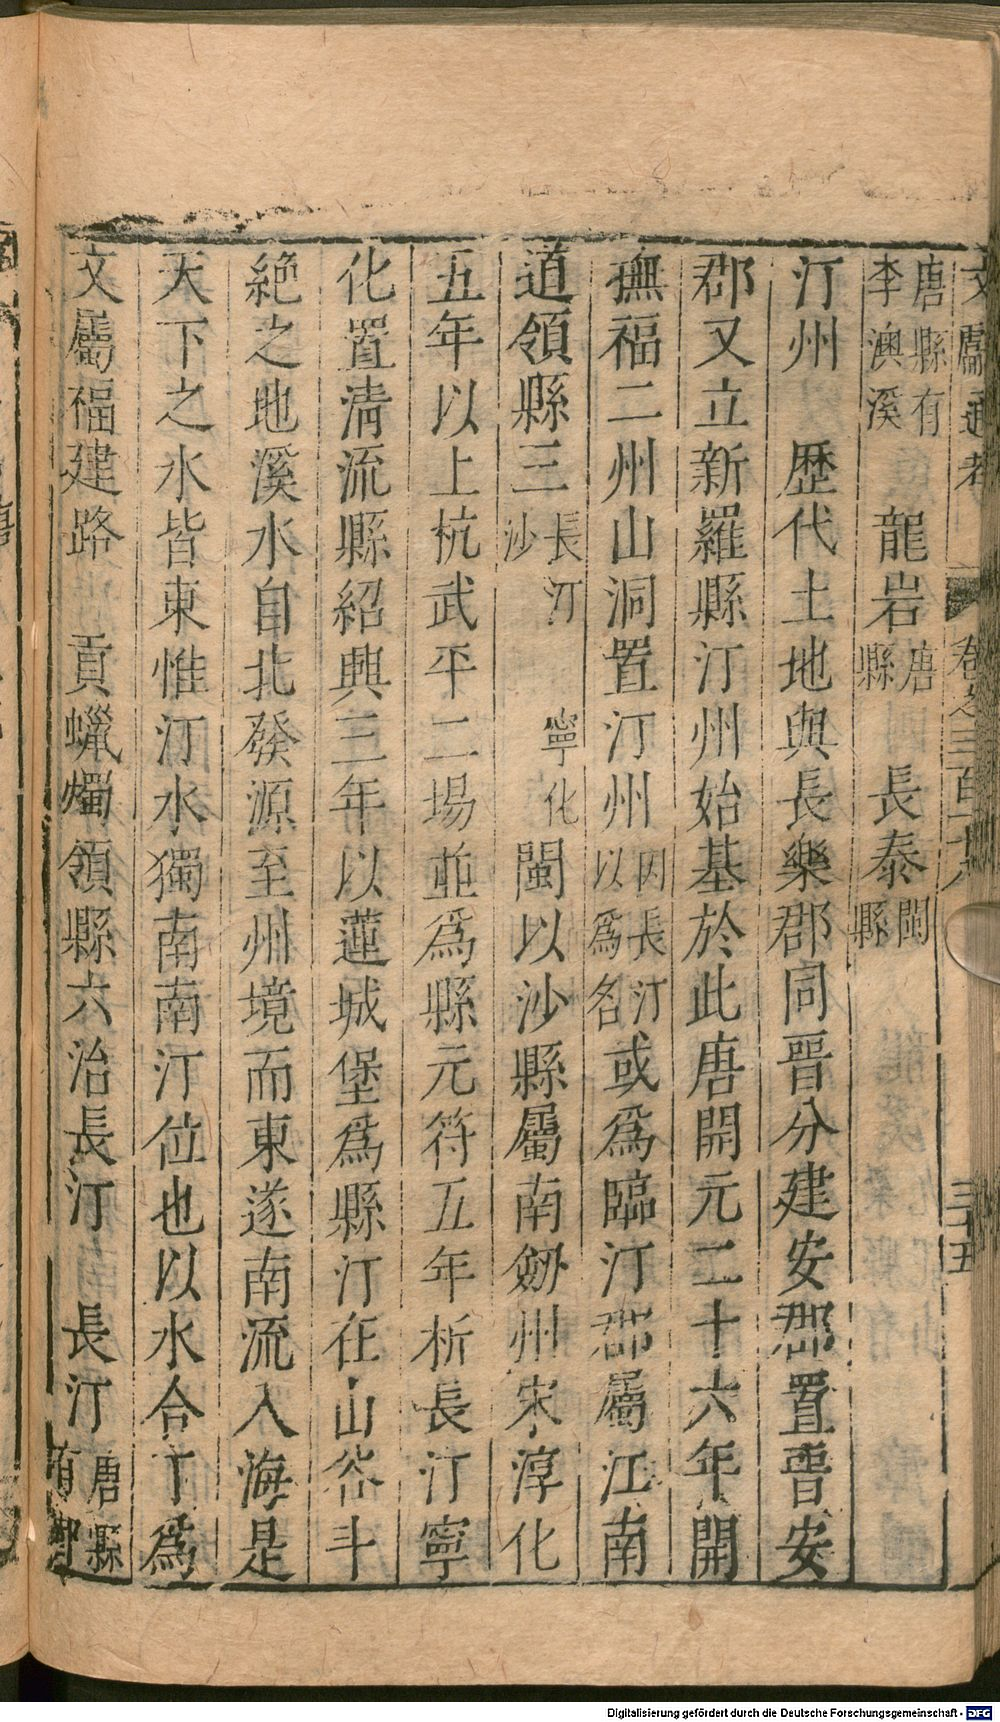 文獻通考 卷之三百十八 三十五
唐縣有李澳溪 龍岩唐縣 長泰閩縣
汀州 歷代土地與長樂郡同晉分建安郡置晉安
郡又立新羅縣汀州始基於此唐開元二十六年開
撫福二州山洞置汀州因長汀以為名或爲臨汀郡屬江南
道領縣三長汀 寧化沙 閩以沙縣屬南劒州宋淳化
五年以上杭武平二場並爲縣元符五年析長汀寧
化置清流縣紹興三年以蓮城堡爲縣汀在山谷斗
絕之地溪水自北發源至州境而東遂南流入海是
天下之水皆東惟汀水獨南南汀位也以水合丁爲
文屬福建路 貢蠟燭領縣六治長汀 長汀唐縣有
Digitalisierung gefördert durch die Deutsche Forschungsgemeinschaft - DFG